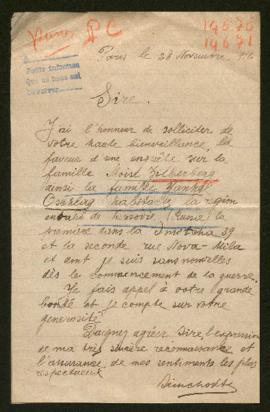 P C
19670
19671
Paris le 28 Novembre
Sire,
J'ai l'honneur de solliciter de
votre haute bienveillance, la
faveur d'une enquête sur la
famille Moïse Zilberberg
ainsi la famille Yankel
habitants la région
de (Russie) la
première dans la Smotcha 39
et la seconde rue Nova-Mila
et dont je suis sans nouvelles
dès le commencement de la guerre.
Je fais appel à votre grande
bonté et je compte sur votre
générosité.
Daignez agréer Sire l'expression
de ma très sincère reconnaissance et
l'assurance de mes sentiments les plus
respectueux